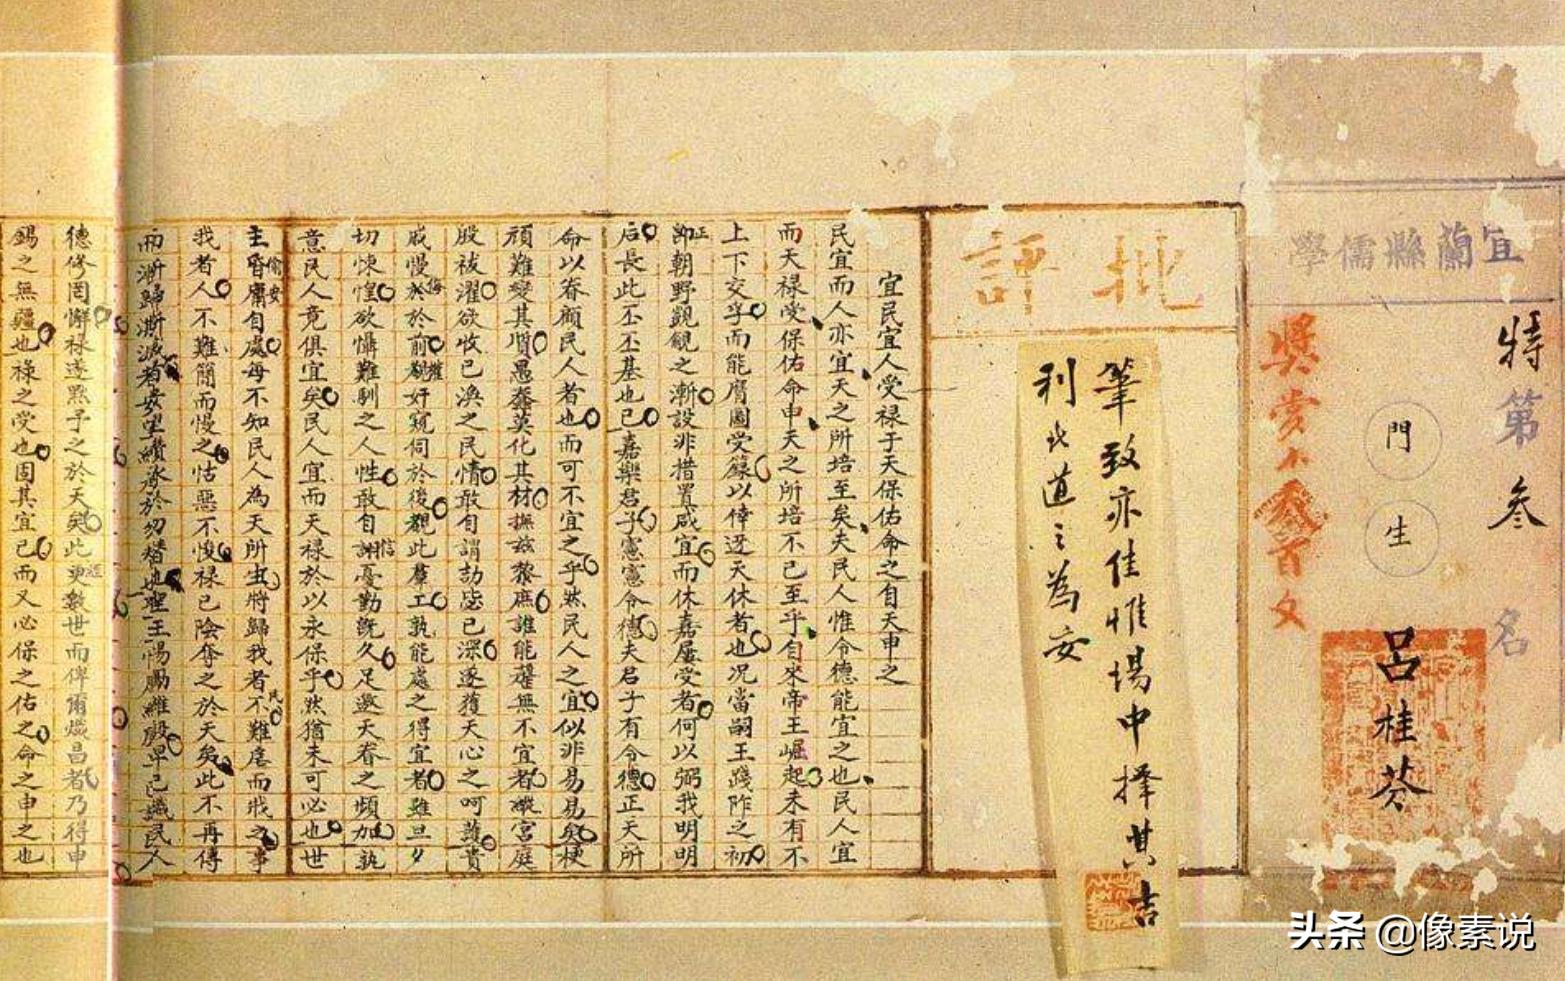 宜蘭縣儒學
特
第叁名
門生
呂桂芬
獎賞小叁百文
批評
筆致亦佳惟場中擇其吉
利之道之為安
宜民宜人受祿于天保佑命之自天申之
民宜而人亦宜天之所培至矣夫民人惟令德能宜之也民人宜
而天祿受保佑命申天之所培不已至乎自來帝王崛起未有不
上下交孚而能膺圖受籙以倖迓天休者也況當嗣王踐阼之初
卽朝野觀覩之漸設非措置咸宜而休嘉屢受者何以弼我明明
后長此丕丕基也已嘉樂君子憲憲令德夫君子有令德正天所
命以眷顧民人者也而可不宜之乎然民人之宜似非易易矣梗
頑難變其質愚蠢莫化其材撫茲黎庶誰能釐無不宜者縱宮庭
殷祓濯欲收已渙之民情敢自謂劼毖已深遂獲天心之呵護貴
戚慢於於前覬奸窺伺於後觀此羣工孰能處之得宜者雖旦夕
切悚惶欲懾難馴之人性敢自謝憂勤旣久足邀天眷之頻加孰
意民人竟俱宜矣民人宜而天祿於以永保乎然猶未可必也世
主昏庸自處每不知民人為天所生將歸我者不難虐而戕之事
我者人不難簡而慢之怙惡不悛祿已陰奪之於天矣此不再傳
而漸歸漸滅者安望纘承於勿替也聖王惕勵維殷早已誠民人
德修罔懈祿遂默予之於天矣此更數世而俾爾熾昌者乃得申
錫之無疆也祿之受也固其宜已而又必保之佑之命之申之也
头条 @像素说